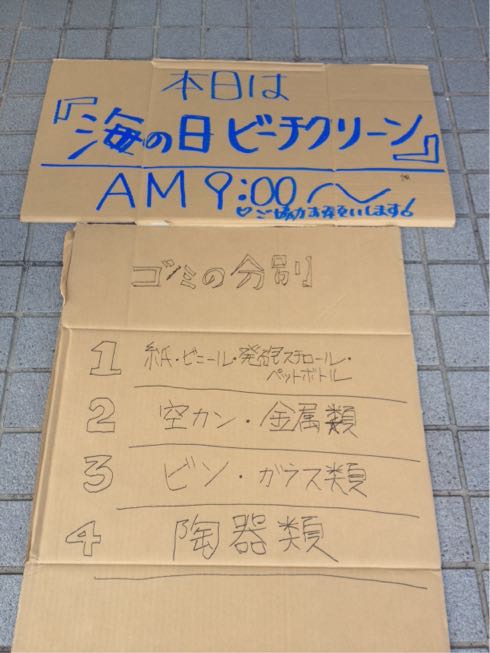 本日は
『海の日ビーチクリーン』
AM 9:00〜
♡ご協力お願いします♪
ゴミの分別
1 紙・ビニール・発砲スチロール・
ペットボトル
2 空カン・金属類
3 ビン・ガラス類
4 陶器類